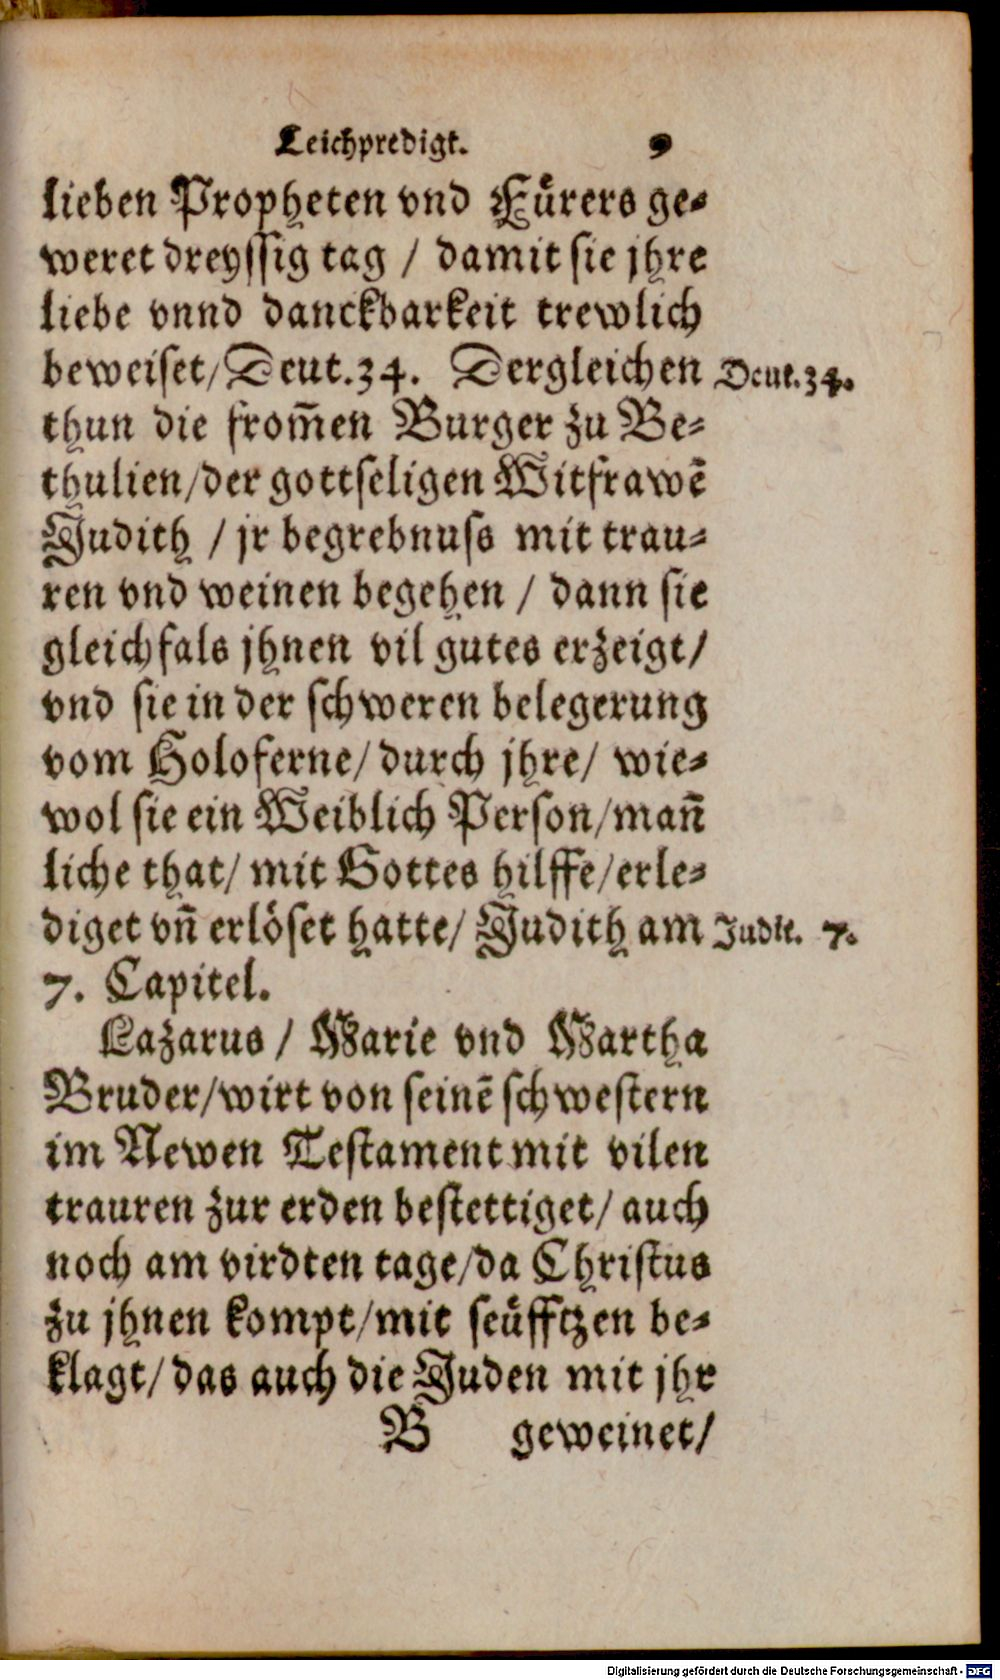 Leichpredigt. 9
lieben Propheten vnd Fürers ge-
weret dreyssig tag / damit sie jhre
liebe vnnd danckbarkeit trewlich
beweiset/ Deut. 34. Dergleichen Deut. 34.
thun die from̃en Burger zu Be-
thulien/der gottseligen Witfrawẽ
Judith / jr begrebnuss mit trau-
ren vnd weinen begehen / dann sie
gleichfals jhnen vil gutes erzeigt/
vnd sie in der schweren belegerung
vom Holoferne/ durch jhre/ wie-
wol sie ein Weiblich Person/mañ
liche that/ mit Gottes hilffe/erle-
diget vñ erlöset hatte/ Judith am Judit. 7.
7. Capitel.
Lazarus / Marie vnd Martha
Bruder/wirt von seinẽ schwestern
im Newen Testament mit vilen
trauren zur erden bestettiget/ auch
noch am virdten tage/da Christus
zu jhnen kompt/mit seüfftzen be-
klagt/ das auch die Juden mit jhr
B geweinet/
Digitalisierung gefördert durch die Deutsche Forschungsgemeinschaft - DFG